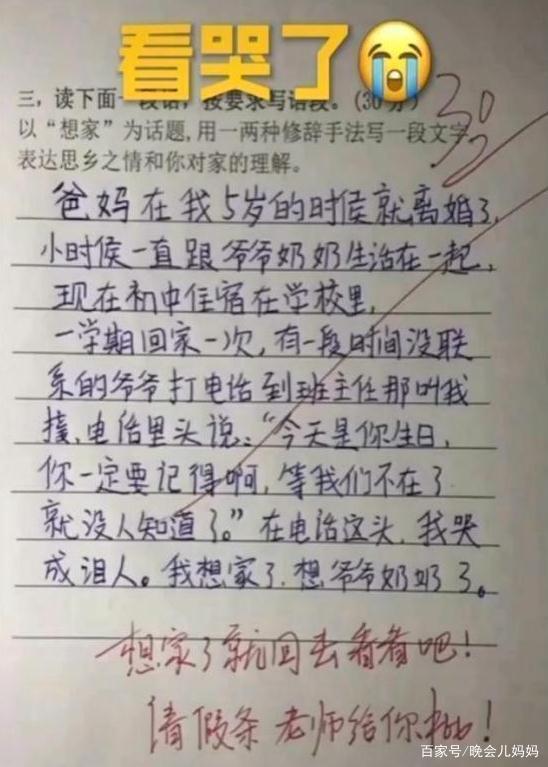 看哭了
三，读下面一段话，按要求写语段。(30分)
30
以“想家”为话题,用一两种修辞手法写一段文字
表达思乡之情和你对家的理解。
爸妈在我5岁的时侯就离婚了
小时侯一直跟爷爷奶奶生活在一起，
现在初中住宿在学校里，
一学期回家一次，有一段时间没联
系的爷爷打电话到班主任那叫我
接，电话里头说：“今天是你生日，
你一定要记得啊，等我们不在了
就没人知道了。”在电话这头，我哭
成泪人。我想家了，想爷爷奶奶了。
想家了就回去看看吧！
请假条老师给你批！
百家号/晚会儿妈妈